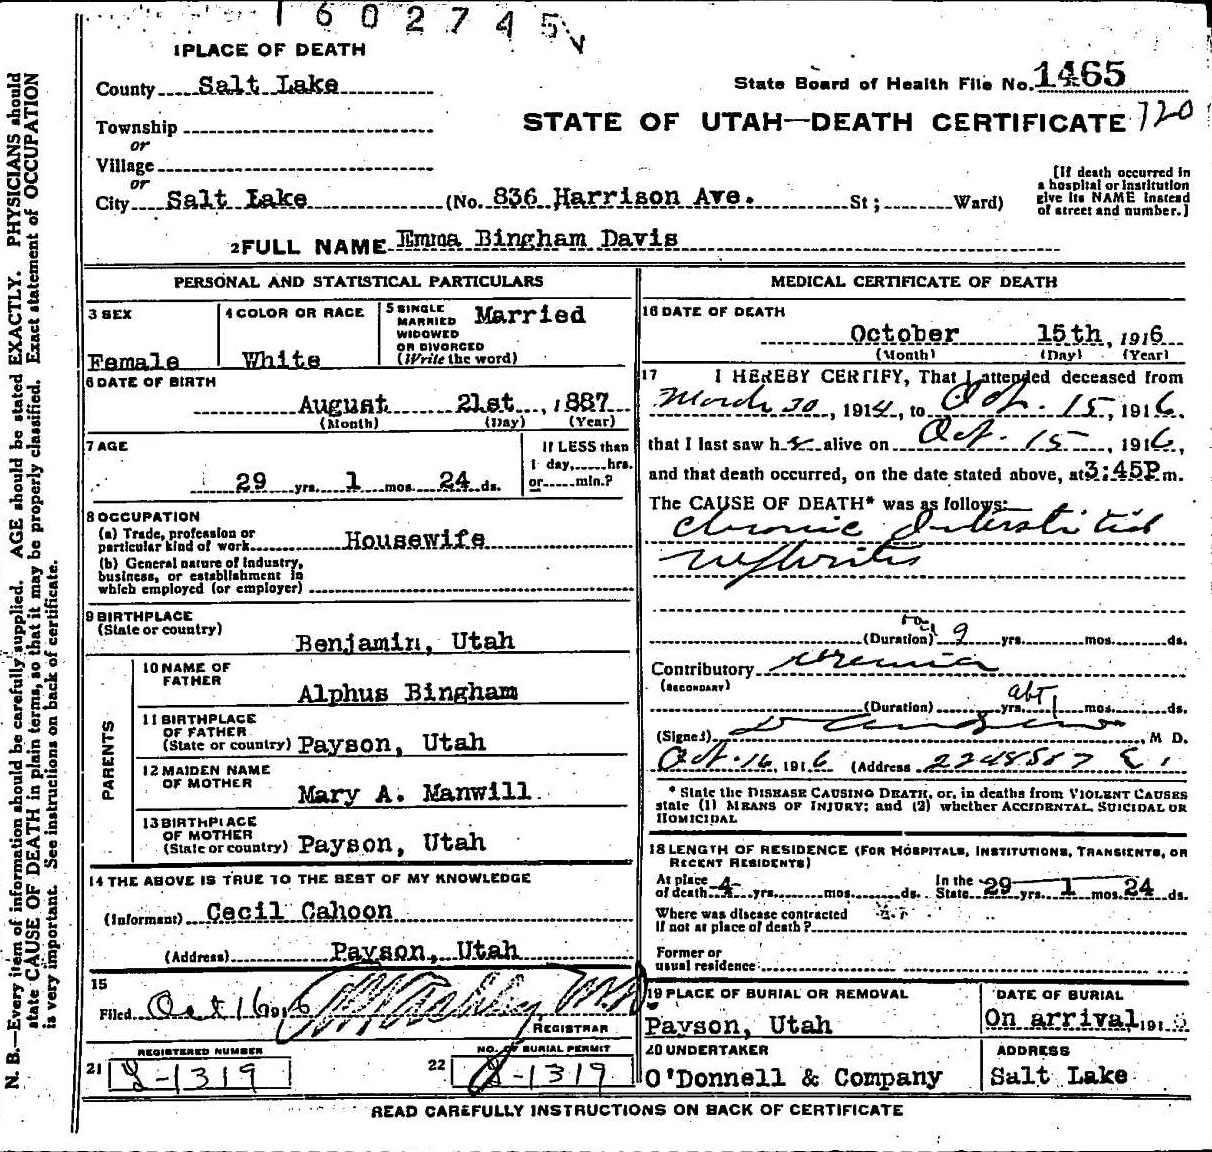 1602745
1 PLACE OF DEATH
County Salt Lake
State Board of Health File No. 1465
Township
or
STATE OF UTAH—DEATH CERTIFICATE 120
Village
or
City Salt Lake (No. 836 Harrison Ave. St; Ward)
[If death occurred in
a hospital or institution
give its NAME instead
of street and number.]
2 FULL NAME Emma Bingham Davis
PERSONAL AND STATISTICAL PARTICULARS
3 SEX
Female
4 COLOR OR RACE
White
5 SINGLE
MARRIED
WIDOWED
OR DIVORCED
(Write the word)
Married
6 DATE OF BIRTH
August 21st, 1887
(Month) (Day) (Year)
7 AGE
29 yrs. 1 mos. 24 ds.
If LESS than
1 day, hrs.
or min.?
8 OCCUPATION
(a) Trade, profession or
particular kind of work Housewife
(b) General nature of industry,
business, or establishment in
which employed (or employer)
9 BIRTHPLACE
(State or country)
Benjamin, Utah
PARENTS
10 NAME OF
FATHER
Alphus Bingham
11 BIRTHPLACE
OF FATHER
(State or country) Payson, Utah
12 MAIDEN NAME
OF MOTHER
Mary A. Manwill
13 BIRTHPLACE
OF MOTHER
(State or country) Payson, Utah
14 THE ABOVE IS TRUE TO THE BEST OF MY KNOWLEDGE
(Informant) Cecil Cahoon
(Address) Payson, Utah
15
Filed Oct 16 1916 M.D.
REGISTRAR
REGISTERED NUMBER
21 -1319
NO. OF BURIAL PERMIT
22 -1319
MEDICAL CERTIFICATE OF DEATH
16 DATE OF DEATH
October 15th, 1916
(Month) (Day) (Year)
17 I HEREBY CERTIFY, That I attended deceased from
March 30, 1914, to Oct. 15, 1916,
that I last saw her alive on Oct. 15, 1916,
and that death occurred, on the date stated above, at 3:45P m.
The CAUSE OF DEATH* was as follows:
Chronic Interstitial
Nephritis
(Duration) 9 yrs. mos. ds.
Contributory Uremia
(SECONDARY)
(Duration) yrs. abt 1 mos. ds.
(Signed) , M D.
Oct. 16, 1916 (Address
* State the DISEASE CAUSING DEATH, or, in deaths from VIOLENT CAUSES
state (1) MEANS OF INJURY; and (2) whether ACCIDENTAL, SUICIDAL OR
HOMICIDAL
18 LENGTH OF RESIDENCE (FOR HOSPITALS, INSTITUTIONS, TRANSIENTS, OR
RECENT RESIDENTS)
At place
of death 4 yrs. mos. ds.
In the
State 29 yrs. 1 mos. 24 ds.
Where was disease contracted
if not at place of death?
Former or
usual residence
19 PLACE OF BURIAL OR REMOVAL
Payson, Utah
DATE OF BURIAL
On arrival 191
20 UNDERTAKER
O'Donnell & Company
ADDRESS
Salt Lake
READ CAREFULLY INSTRUCTIONS ON BACK OF CERTIFICATE
N. B.—Every item of information should be carefully supplied. AGE should be stated EXACTLY. PHYSICIANS should
state CAUSE OF DEATH in plain terms, so that it may be properly classified. Exact statement of OCCUPATION
is very important. See instructions on back of certificate.